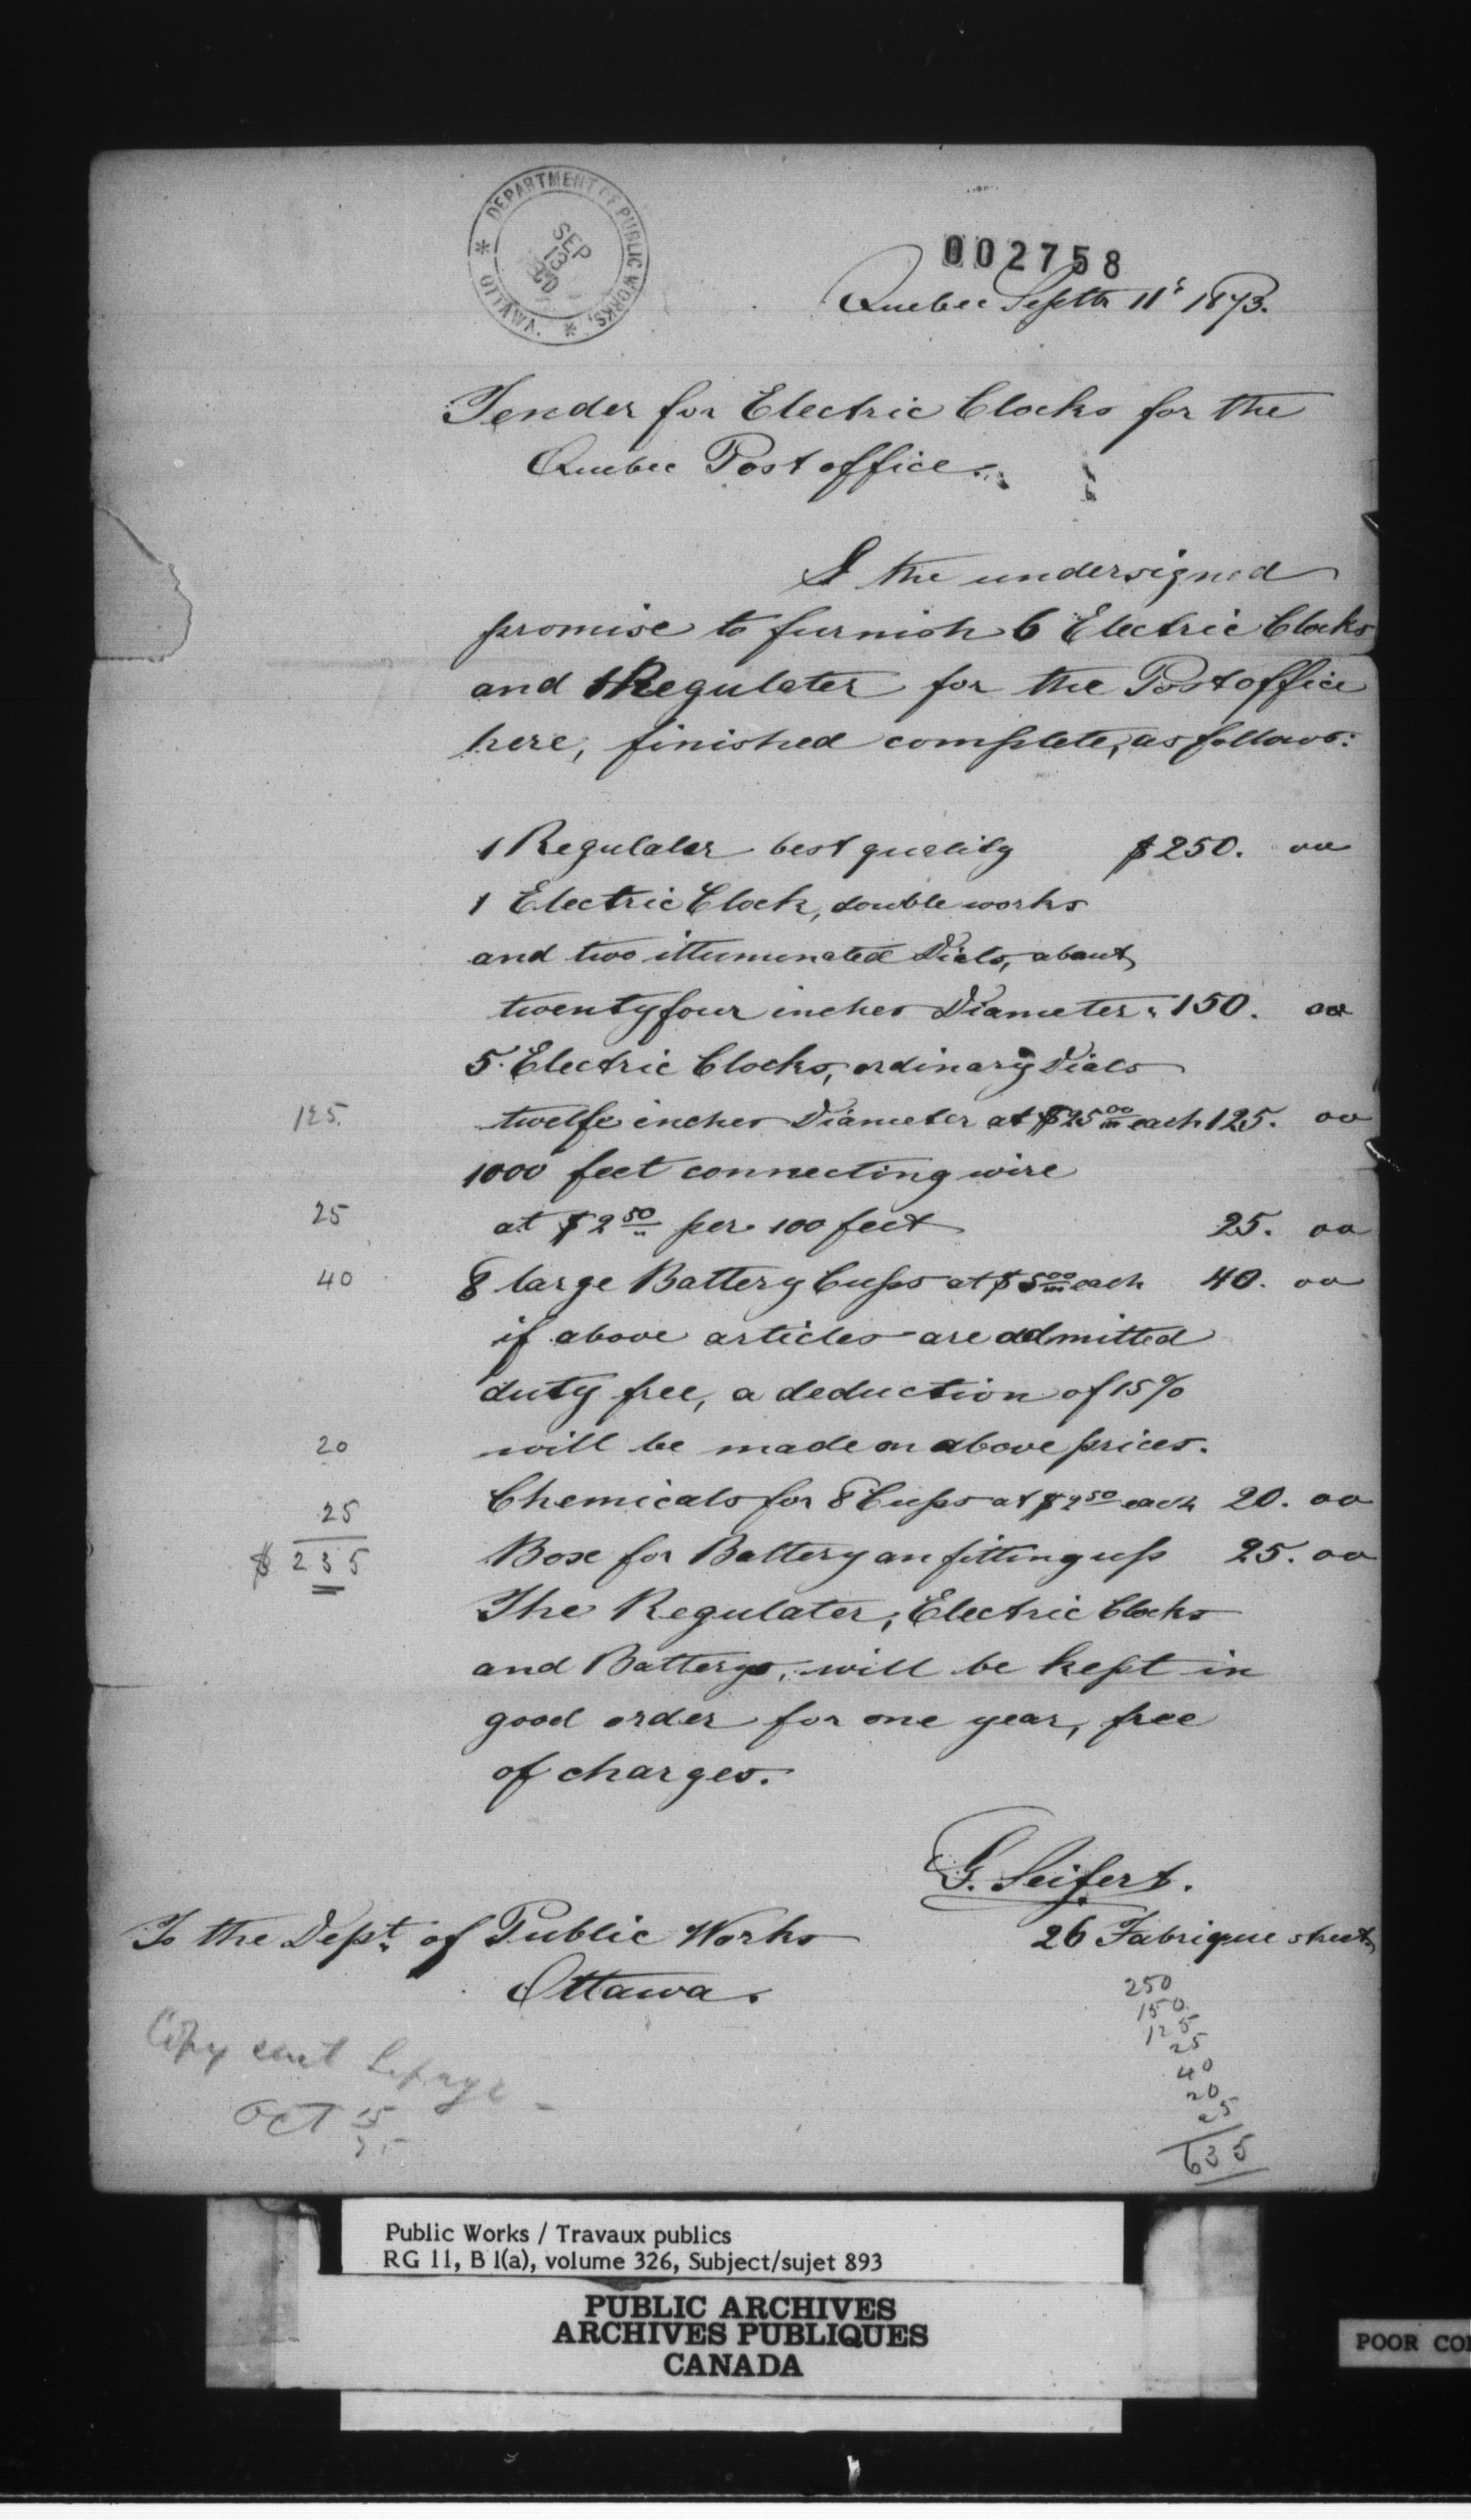 DEPARTMENT OF PUBLIC WORKS, * OTTAWA. *
SEP
13
002758
Quebec Septbr 11t 1873.
Tender for Electric Clocks for the
Quebec Post office.
I the undersigned
promise to furnish 6 Electric Clocks
and 1 Regulater for the Postoffice
here, finished complete, as follows:
1 Regulater best quality $250. oo
1 Electric Clock, double works
and two illuminated Dials, about
twentyfour inches Diameter " 150. oo
5 Electric Clocks, ordinary Dials
125. twelfe inches Diameter at $25 00 each 125. oo
1000 feet connecting wire
25 at $2 50 per 100 feet 25. oo
40 8 large Battery Cups at $5 00 each 40. oo
if above articles are admitted
duty free, a deduction of 15%
20 will be made on above prices.
Chemicals for 8 Cups at $2 50 each 20. oo
25
$ 235 Box for Battery an fitting up 25. oo
The Regulater, Electric Clocks
and Batterys, will be kept in
good order for one year, free
of charges.
G. Seifert.
To the Dept. of Public Works 26 Fabrique street
Ottawa.
250
150
125
25
40
20
25
635
Copy sent Lepage
Oct 15
Public Works / Travaux publics
RG 11, B 1(a), volume 326, Subject/sujet 893
PUBLIC ARCHIVES
ARCHIVES PUBLIQUES
CANADA
POOR CO